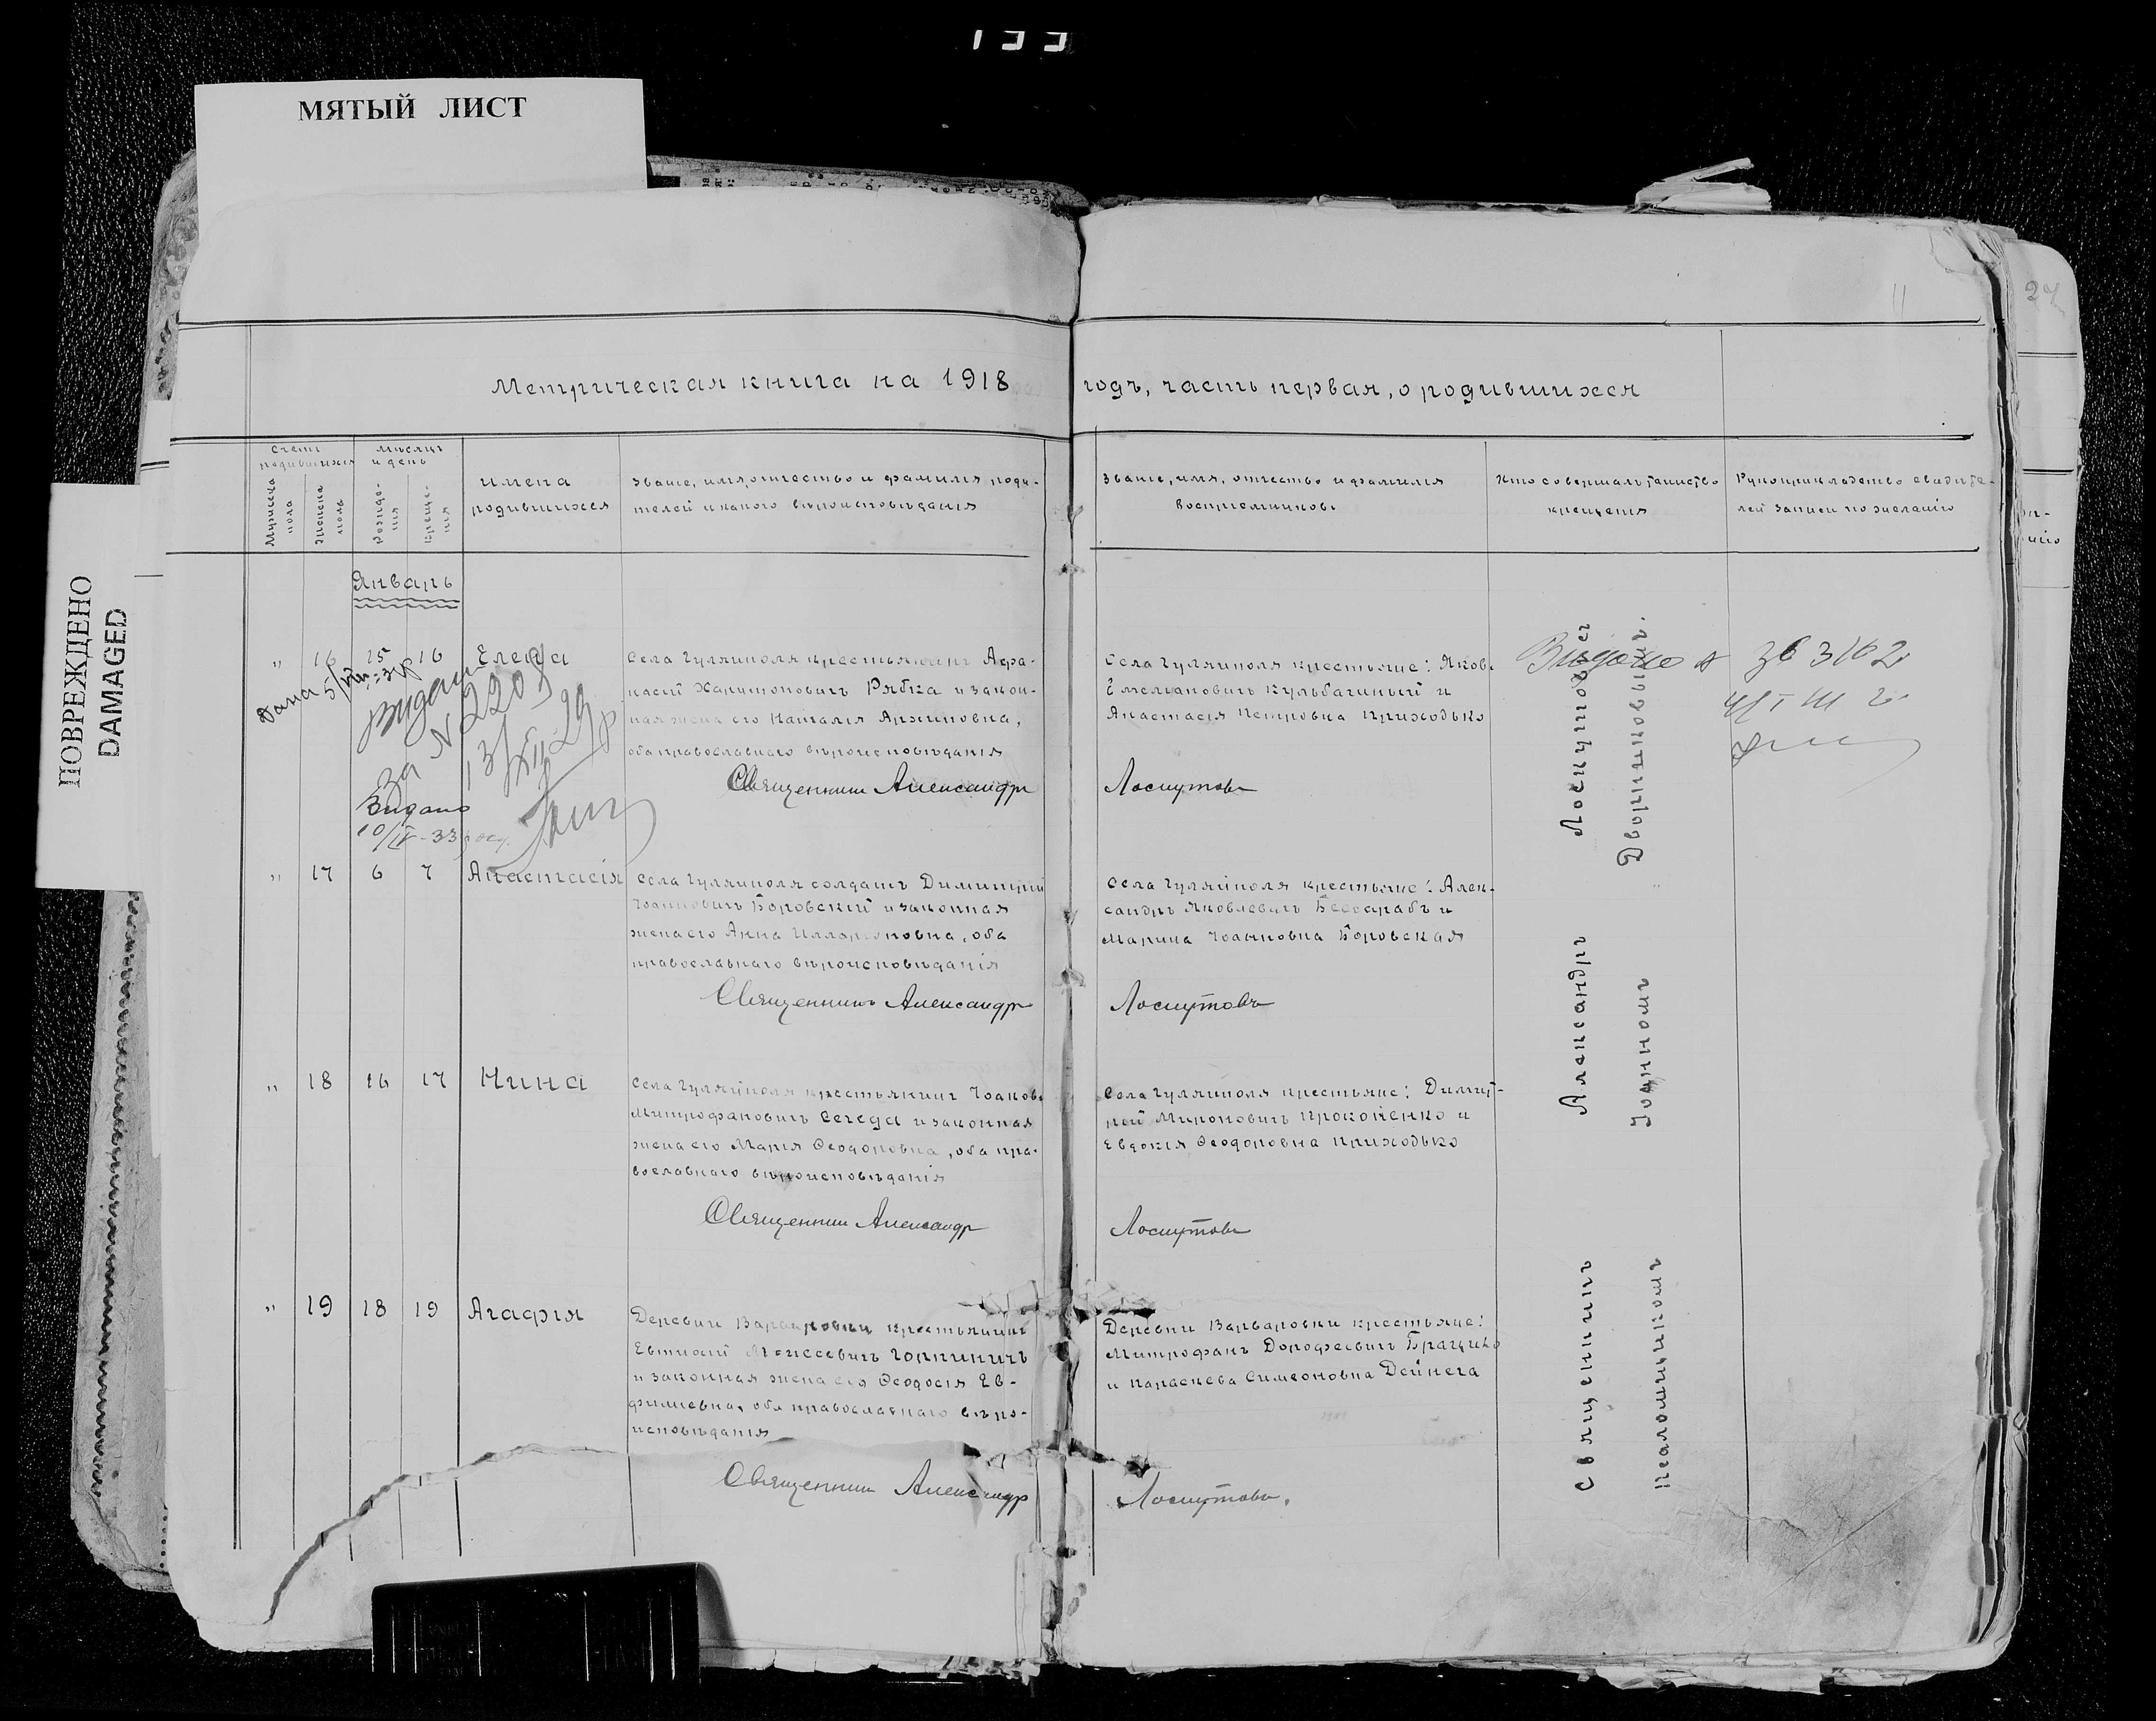 133
МЯТЫЙ ЛИСТ
ПОВРЕЖДЕНО
DAMAGED
24
11
Метрическая книга на 1918 годъ, часть первая, о родившихся
Счетъ родившихся
Мужеска пола
Женска пола
Мѣсяцъ и день
Рожде-
нія
Креще-
нія
Имена
родившихся
Званіе, имя, отчество и фамилия роди-
телей и какого вѣроисповѣданія
Званіе, имя, отчество и фамилия
воспріемниковъ
Кто совершалъ таинство
крещенія
Рукоприкладство свидѣте-
лей записи по желанію
Январь
" 16 15 16 Елена
Села Гуляйполя крестьянинъ Афа-
насій Харитоновичъ Рябка и закон-
ная жена его Наталія Архиповна,
оба православнаго вѣроисповѣданія
Села Гуляйполя крестьяне: Яковъ
Емеліановичъ Кульбачный и
Анастасія Петровна Приходько
Священникъ Александръ Лоскутовъ
Видана
за № 2205
13/XII-29
Видано
10/IV-33
Видано
за 3162
" 17 6 7 Анастасія
Села Гуляйполя солдатъ Димитрий
Іоанновичъ Боровскій и законная
жена его Анна Илларіоновна, оба
православнаго вѣроисповѣданія
Села Гуляйполя крестьяне: Алек-
сандръ Яковлевичъ Бессарабъ и
Марина Іоанновна Боровская
Священникъ Александръ Лоскутовъ
" 18 16 17 Нина
Села Гуляйполя крестьянинъ Іаковъ
Митрофановичъ Сегеда и законная
жена его Марія Ѳеодоровна, оба пра-
вославнаго вѣроисповѣданія
Села Гуляйполя крестьяне: Димит-
рій Мироновичъ Прокопенко и
Евдокія Ѳеодоровна Приходько
Священникъ Александръ Лоскутовъ
" 19 18 19 Агафія
Деревни Варваровки крестьянинъ
Евтихій Моисеевичъ
и законная жена его Ѳеодосія Ев-
фимиевна, оба православнаго вѣро-
исповѣданія
Деревни Варваровки крестьяне:
Митрофанъ Дорофеевичъ
и Параскева Симеоновна Дейнега
Священникъ Александръ Лоскутовъ.
Священникъ Александръ Лоскутовъ съ
псаломщикомъ Іоанномъ Дворниковымъ.